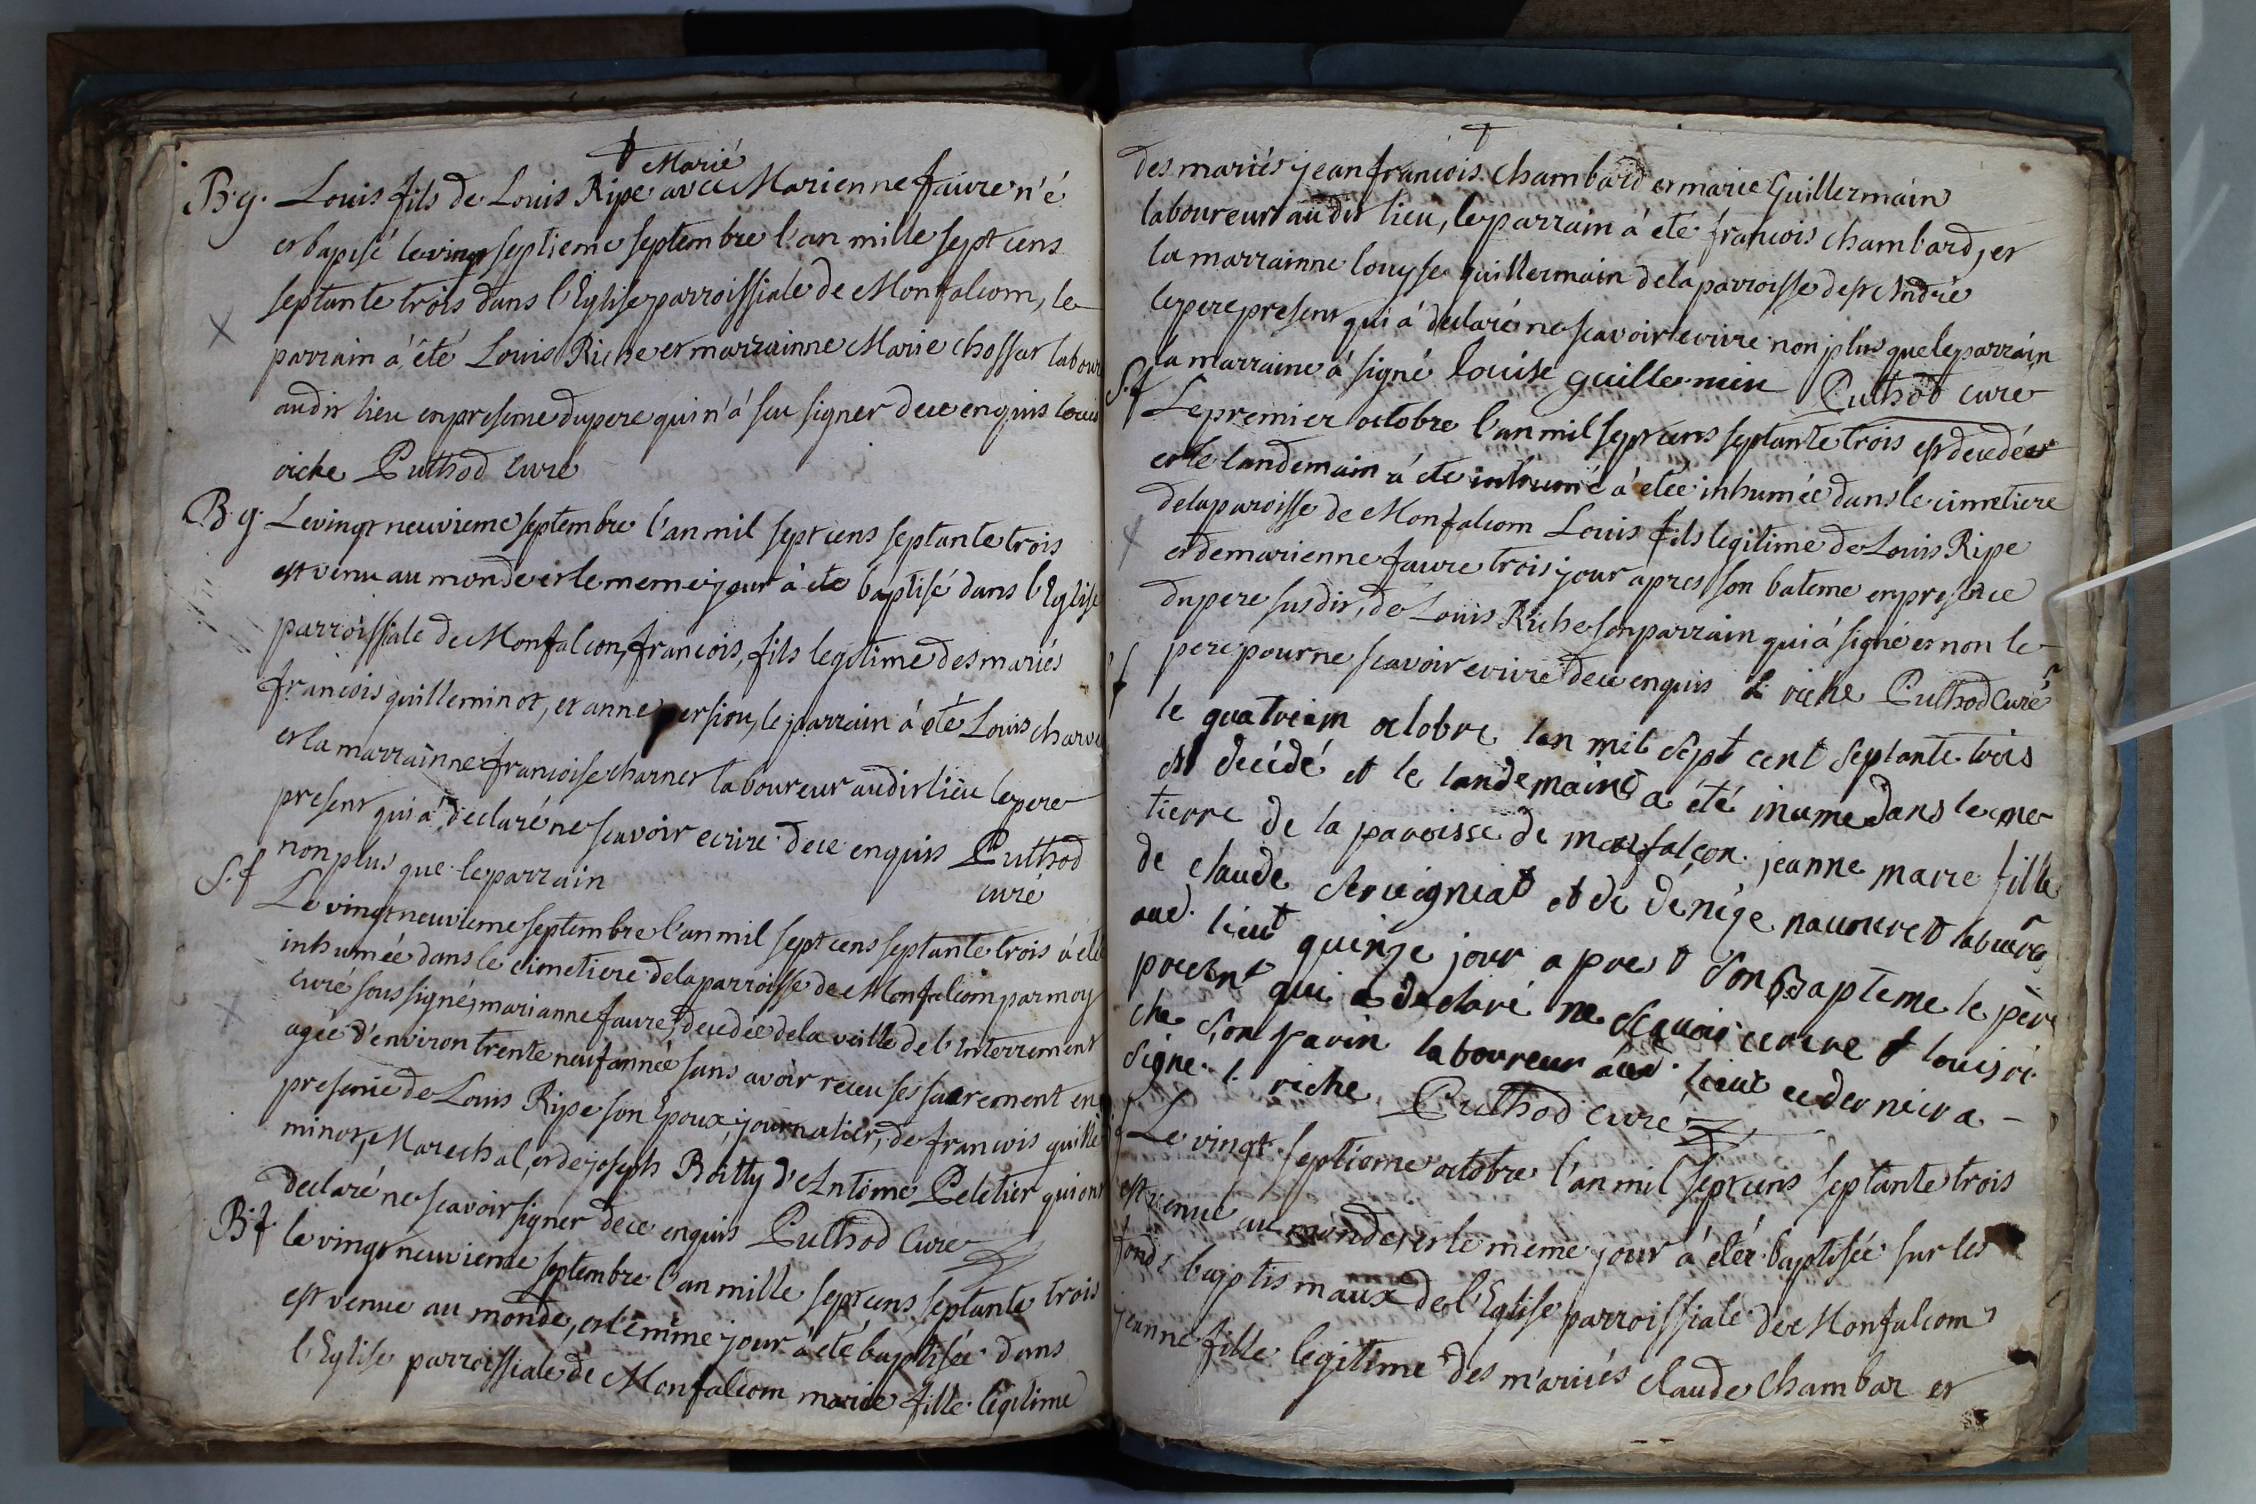 † Marié
B. g. Louis fils de Louis Ripe avec Marienne faure n'é
et bapisé le vingt septieme septembre l'an mille sept cens
septante trois dans l'Eglise parroissiale de Monfalcom, le
parrain à été Louis Riche et marrainne Marie chossat labour
audit lieu en presence du pere qui n'a sçu signer de ce enquis Louis
riche Puthod Curé
B. g. Le vingt neuvieme septembre l'an mil sept cens septante trois
est venu au monde et le meme jour à ete baptisé dans l'Eglise
parroissiale de Monfalcon, francois, fils legitime des mariés
francois guilleminot, et anne persiou, le parrain à été Louis
et la marrainne francoise charnet laboureur audit lieu le pere
present qui à declaré ne scavoir ecrire de ce enquis Puthod
non plus que le parrain curé
S. f Le vingt neuvieme septembre l'an mil sept cens septante trois à eté
inhumée dans le cimetiere de la parroisse de Monfalcom par moy
curé soussigné, marianne faure, decedée de la veille de l'interrement
agée d'environ trente neuf année sans avoir receu ses sacrement en
presence de Louis Ripe son Epoux, journalier, de francois guille
minot, Marechal, et de joseph Boitty d'Antôme Peletier qui ont
declaré ne scavoir signer de ce enquis Puthod Curé
B. f. le vingt neuvieme septembre l'an mille sept cens septante trois
est venue au monde, et le mme jour à été baptisée dans
l'Eglise parroissiale de Monfalcom marie fille legitime
†
des mariés jean francois chambard et marie Guillermain
laboureur audit lieu, le parrain à eté francois chambard, et
la marrainne louyse guillermain de la parroisse de st André
le pere present qui à declaré ne scavoir ecrire non plus que le parrain
la marraine à signé louise guillermin Puthod curé
S. f Le premier octobre l'an mil sept cens septante trois est decedée
et le landemain à eté inhumé à eteé inhumée dans le cimetiere
de la paroisse de Monfalcom Louis fils legitime de Louis Ripe
et de marienne faure trois jour apres son bateme en presence
du pere susdit, de Louis Riche son parrain qui à signé et non le
pere pour ne scavoir ecrire de ce enquis L riche Puthod Curé
le quatreim octobre lan mil sept cent septante trois
et decédé et le landemaint a été inume dans le cme
tierre de la paroisse de monfalcon jeanne marie fille
de claude serveigniat et de dénige labure
aud. lieut quinze jour apre t son Bapteme le père
present qui a declaré ne scavoir ecrire t louis ri
che son parin laboureur aud. lieut ce dernier a
signe. l. riche Puthod curé
f Le vingt septieme octobre l'an mil sept cens septante trois
est venue au monde, et le même jour à eteé baptisée sur les
fonds baptismaux de l'Eglise parroissiale de Monfalcom
jeanne fille legitime des mariés claude chambar et